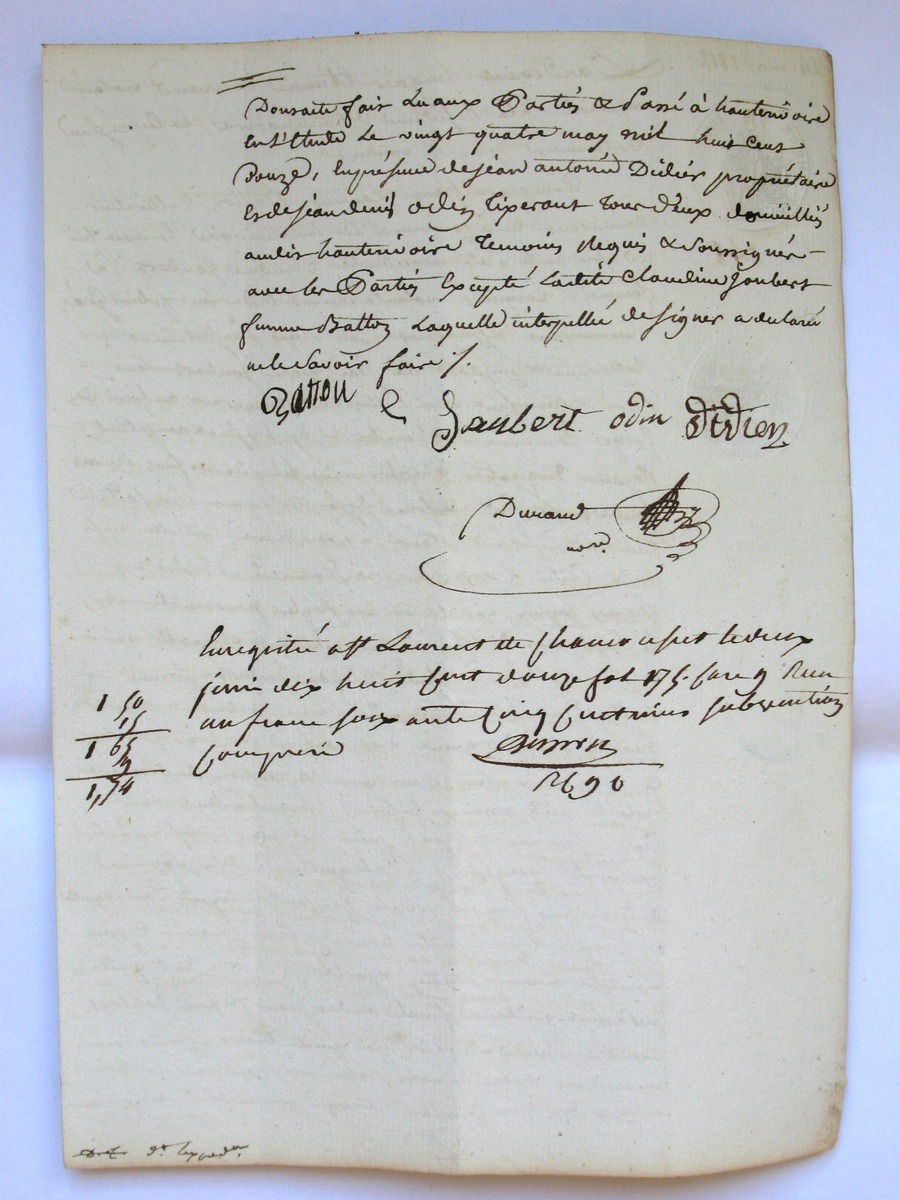 Dont acte fait Lu aux Parties & Passé à hauterivoire
En l'Etude Le vingt quatre may mil huit Cent
Douze, En présence de jean antoine Didier propriétaire
Et de jean denis odin Tixerant tous d'Eux domiciliés
audit hauterivoire Temoins Requis & Soussignés
avec les Parties Excepté Ladite Claudine Joubert
femme Batton Laquelle interpellée de signer a declaré
ne le Savoir faire ./.
Batton
Jaubert odin didier
Durand
nore
Enregistré a St Laurent de Chamousset le deux
juin dix huit Cent douze fol 175. Case 9 Recu
un franc soixante Cinq Centimes subvention
Comprise
1 50
15
1 65
9
1,74
2690